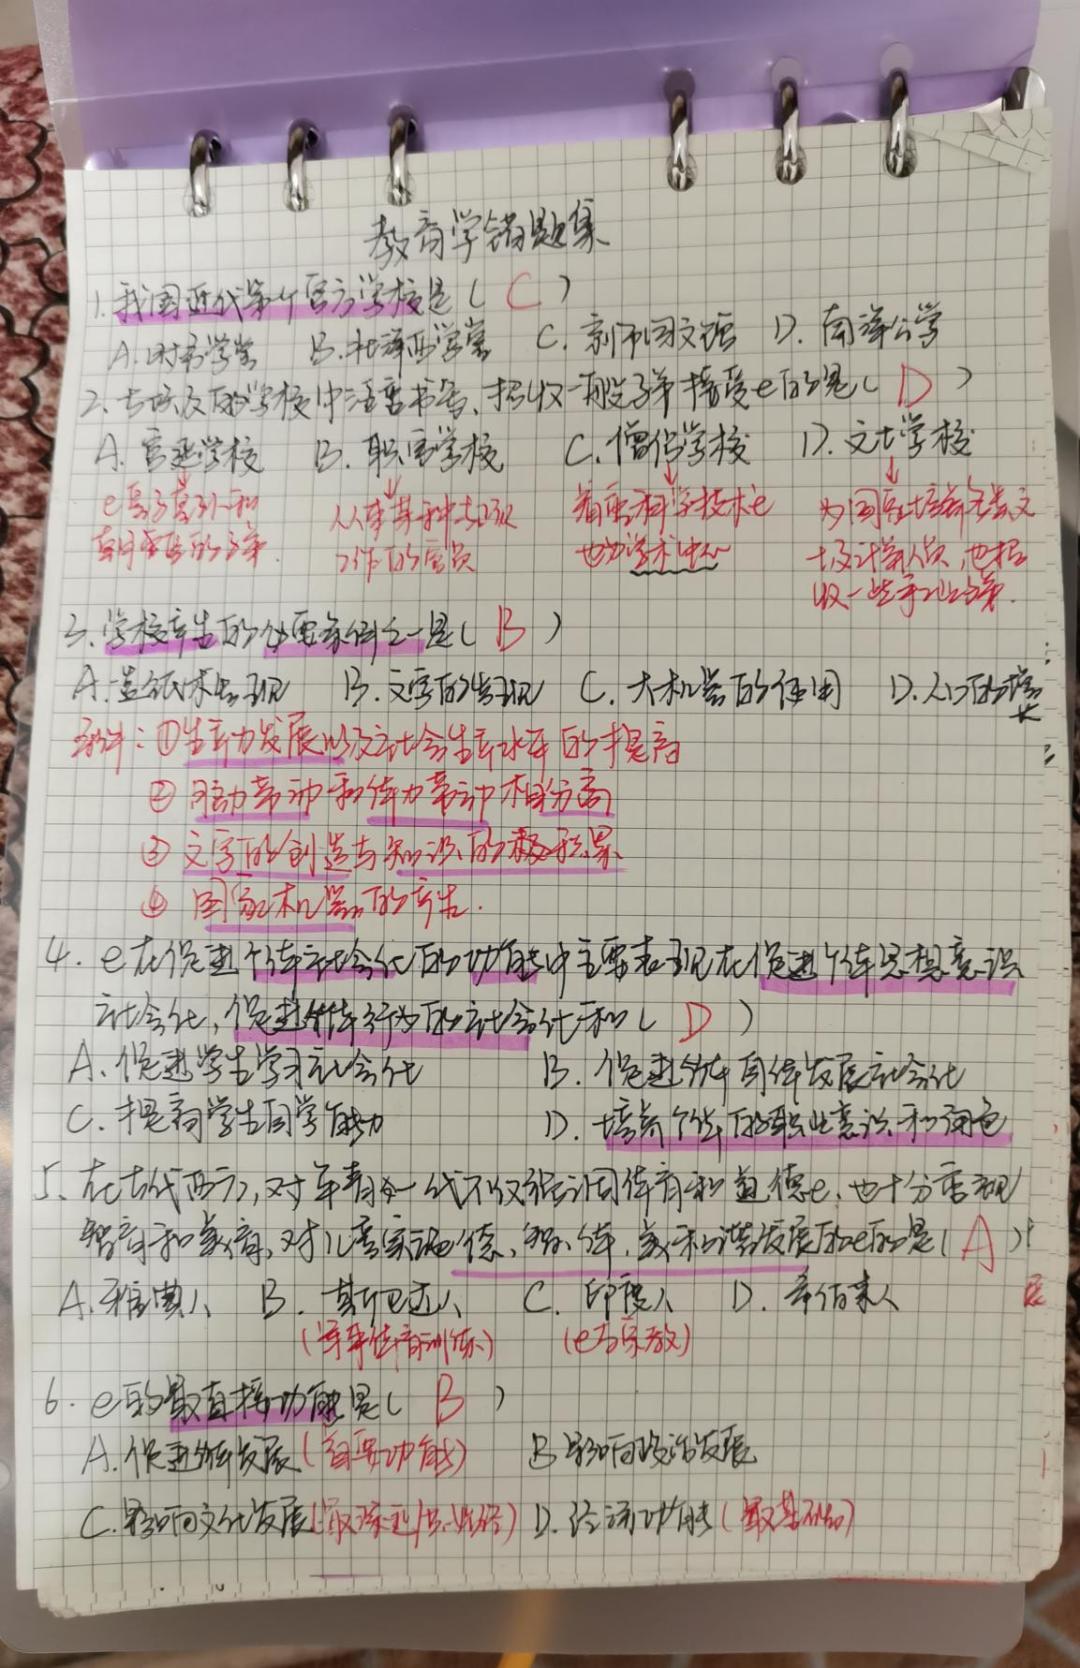 教育学错题集
1. 我国近代第一个官方学校是( C )
A. 时务学堂 B. 北洋西学堂 C. 京师同文馆 D. 南洋公学
2. 古埃及的学校中注重书写、招收一般子弟接受e的是( D )
A. 宫廷学校 B. 职官学校 C. 僧侣学校 D. 文士学校
e皇子皇孙和 着重科学技术e 为国家培养各类文
朝中重臣的子弟. 工作的官员 也为学术中心
收一些手工业子弟.
3. 学校产生的必要条件之一是( B )
A. 造纸术出现 B. 文字的出现 C. 大机器的使用 D. 人口的增长
条件: ①生产力发展以及社会生产水平的提高
② 脑力劳动和体力劳动相分离
③ 文字的创造与知识的积累
④ 国家机器的产生.
4. e在促进个体社会化的功能中主要表现在促进个体思想意识
社会化, 促进个体行为的社会化和( D )
A. 促进学生学习社会化 B. 促进个体身体发展社会化
C. 提高学生同学能力 D. 培养个体的职业意识和角色
5. 在古代西方, 对年青一代不仅强调体育和道德e, 也十分重视
智育和美育, 对儿童实施德、智、体、美和谐发展的e的是( A )
A. 雅典人 B. 斯巴达人 C. 印度人 D. 希伯来人
(军事体育训练) (e与宗教)
6. e的最直接功能是( B )
A. 促进个体发展(首要功能) B 影响政治发展
C. 影响文化发展(最深远) D. 经济功能(最基础)